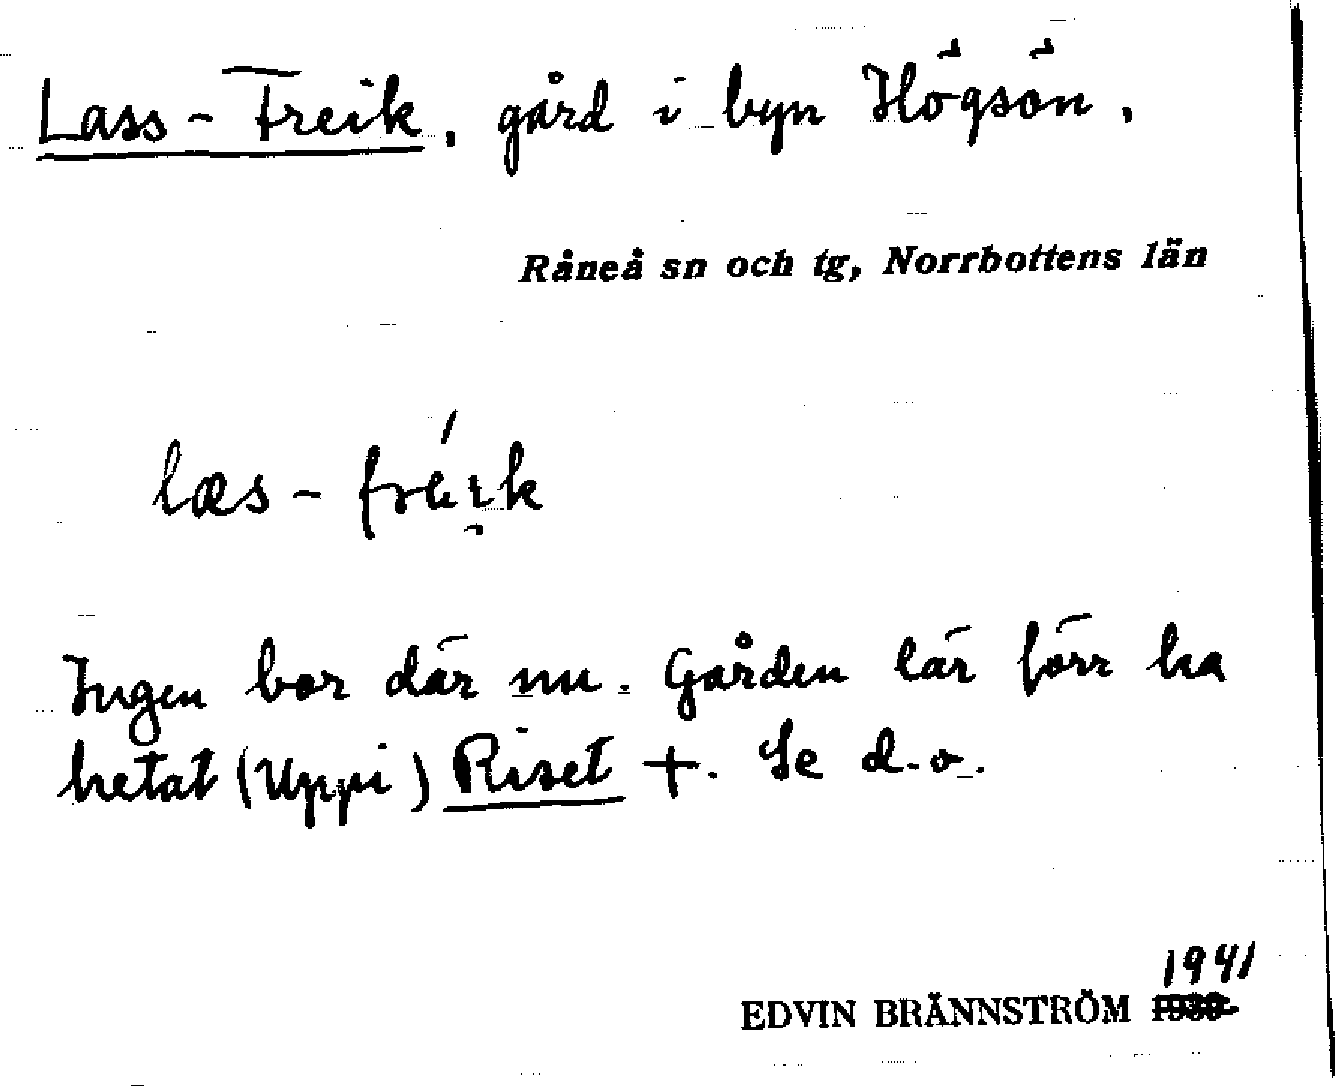 Lass-Freik, gård i byn Högsön.
Råneå sn och tg, Norrbottens län
læs-fréi̯k
Ingen bor där nu. Gården lär förr ha
hetat (Uppi) Riset +. Se d.o.
1941
EDVIN BRÄNNSTRÖM 1939